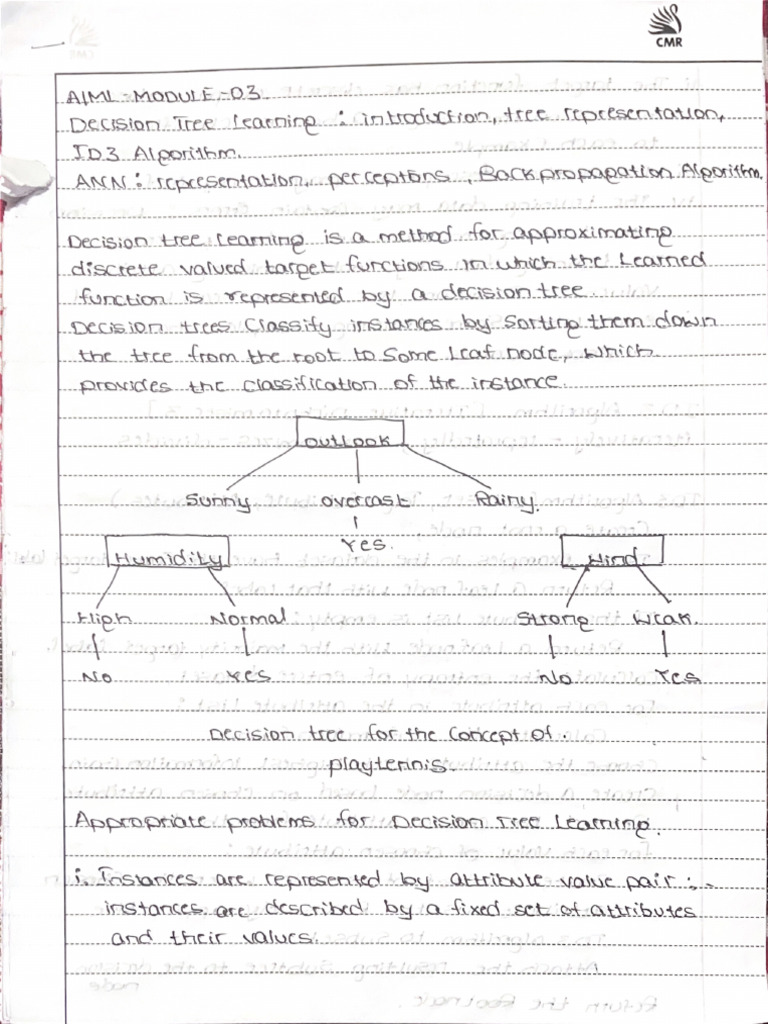 CMR
AIML - MODULE - 03
Decision Tree Learning : introduction, tree representation,
ID3 Algorithm.
ANN : representation, perceptons, Backpropagation Algorithm.
Decision tree Learning is a method for approximating
discrete valued target functions in which the Learned
function is represented by a decision tree.
Decision trees classify instances by Sorting them down
the tree from the root to Some Leaf node, which
provides the classification of the instance.
Outlook
Sunny overcast Rainy.
Yes.
Humidity Wind.
High Normal Strong Weak.
No Yes No Yes
Decision tree for the Concept of.
playtennis.
Appropriate problems for Decision Tree Learning.
i. Instances are represented by attribute value pair :-
instances are described by a fixed set of attributes
and their values.